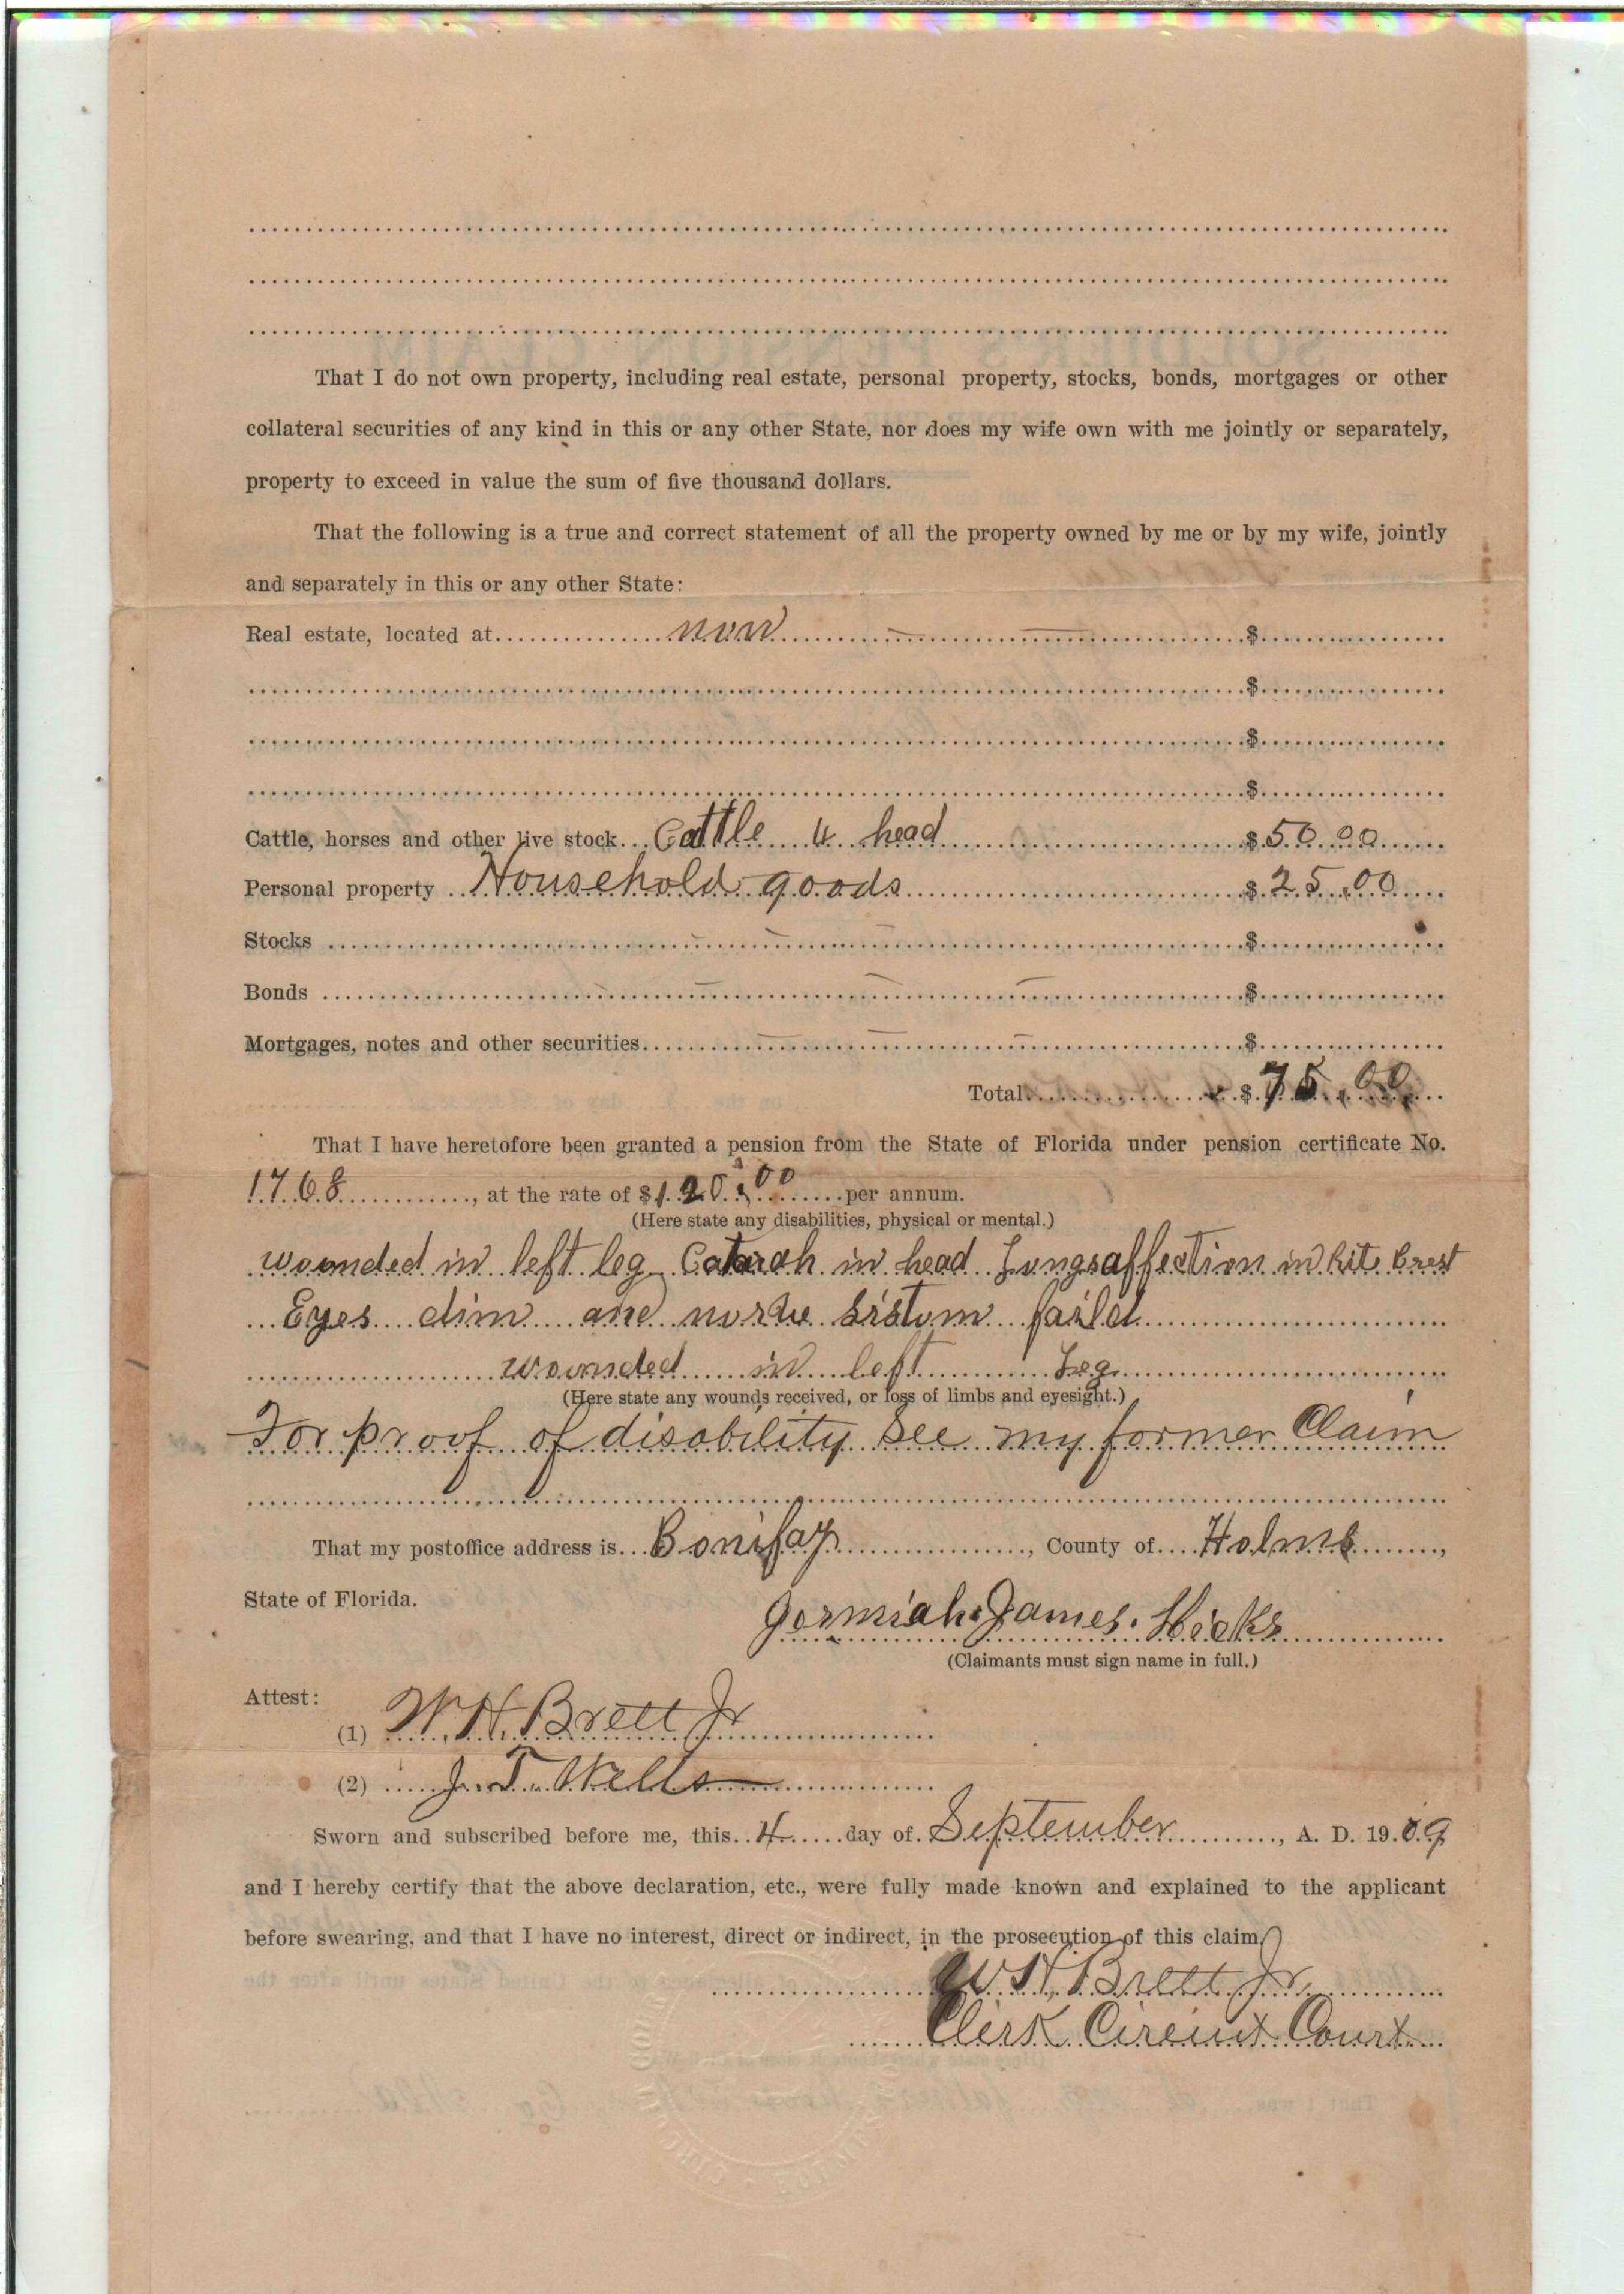 That I do not own property, including real estate, personal property, stocks, bonds, mortgages or other
collateral securities of any kind in this or any other State, nor does my wife own with me jointly or separately,
property to exceed in value the sum of five thousand dollars.
That the following is a true and correct statement of all the property owned by me or by my wife, jointly
and separately in this or any other State:
Real estate, located at non $
$
$
$
Cattle, horses and other live stock Cattle 4 head $50.00
Personal property Household goods $25.00
Stocks $
Bonds $
Mortgages, notes and other securities $
Total $75.00
That I have heretofore been granted a pension from the State of Florida under pension certificate No.
1768, at the rate of $120.00 per annum.
(Here state any disabilities, physical or mental.)
wounded in left leg Catarah in head Lungs affection in brest
Eyes dim and sistum faild
wounded in left Leg
(Here state any wounds received, or loss of limbs and eyesight.)
For proof of disability see my former Claim
That my postoffice address is Bonifay, County of Holms,
State of Florida.
Jermiah James Hicks
(Claimants must sign name in full.)
Attest:
(1) W. H. Brett Jr
(2) J. T. Wells
Sworn and subscribed before me, this 4 day of September, A. D. 1909
and I hereby certify that the above declaration, etc., were fully made known and explained to the applicant
before swearing, and that I have no interest, direct or indirect, in the prosecution of this claim.
W. H. Brett Jr.
Clerk Circuit Court